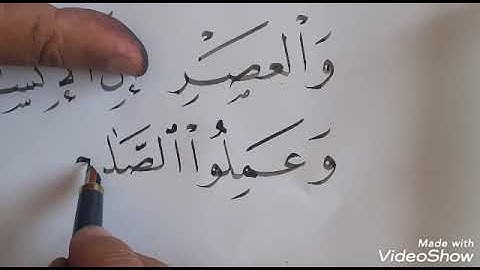 وَالْعَصْرِ إِنَّ الْإِنس
وَعَمِلُواْ الصَّلٰح
Made with
VideoShow